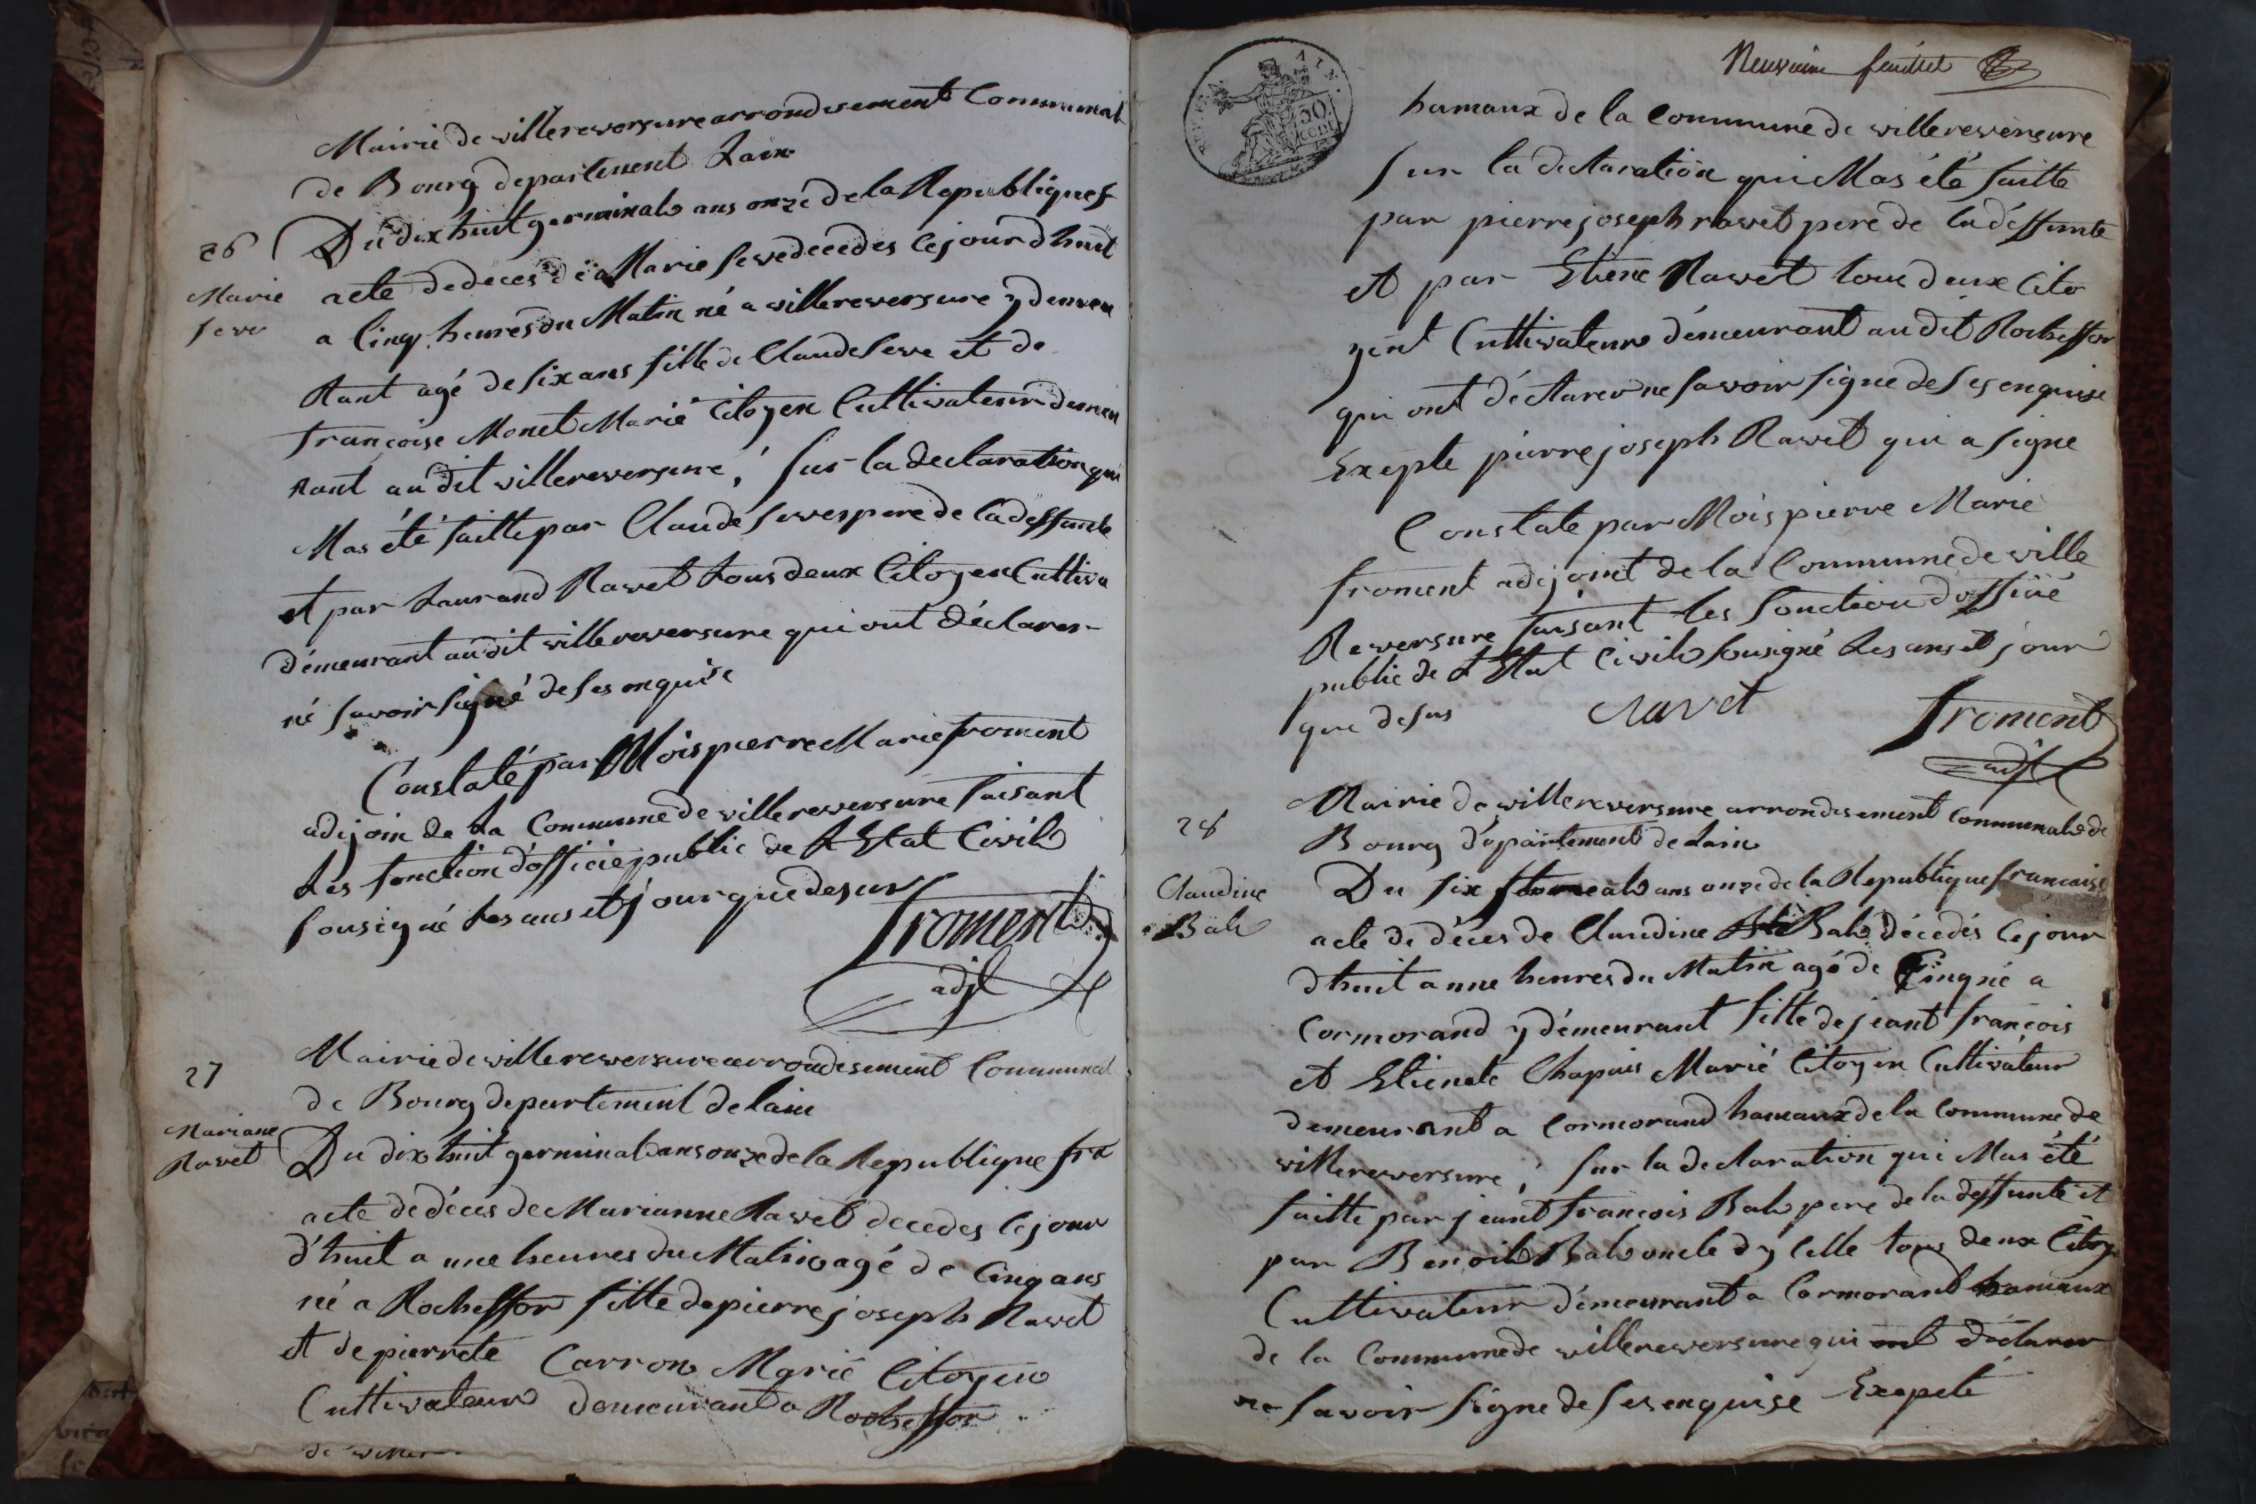 Mairie de villereversure arrondisement Communal
de Bourg departement Lain
26
Du dix huit germinal ans onze de la Republiques
Marie
Seve
acte de deces de Marie Seve decedes cejourdhuit
a Cinq heures du Matin né a villereversure y demeu
Rant agé de six ans fille de Claude Seve et de
francoise Monet Marié Citoyen Cultivateur demeu
Rant au dit villereversure, sur la declaration qui
Mas été faitte par Claude Seves pere de la deffunte
et par Laurand Ravet tous deux Citoyen Cultiva
démeurant au dit villereversure qui ont déclarer
né savoir signé de ses enquise
Constaté par Mois pierre Marie froment
adijoin de La Commune de villereversure faisant
Les fonction d'officie public de L Etat Civil
sousigné les ans et jour que desur
froment
adjt
27
Mairie de villereversure arrondisement Communal
de Bourg departement de lain
Mariane
Ravet
Du dix huit germinal ans onze de la Republique fra
acte de déces de Marianne Ravet decedes cejour
d'huit a une heures du Matin agé de Cinq ans
né a Rocheffor fille de pierre joseph Ravet
et de pierrete Carron Marié Citoyen
Cultivateur demeurant a Rocheffor
Neuvieme feuillet
AIN
50
hamaux de la Commune de villereversure
sur la déclaration qui Mas été faitte
par pierre joseph ravet pere de la déffunte
et par Etiene Ravet tous deux Cito
yent Cultivateur démeurant au dit Rocheffor
qui ont déclarer ne savoir signe de ses enquise
Exepte pierre joseph Ravet qui a signe
Constate par Mois pierre Marie
froment adijoint de la Commune de ville
Reversure faisant les fonction d'officié
public de L Etat Civil sousigné Les ans et jour
que desus
ravet
froment
adjt
28
Mairie de villereversure arrondisement Communal de
Bourg département de Lain
Claudine
Bal
Du six floreal ans onze de la Republique francaise
acte de déces de Claudine Bal décedés cejour
d'huit a une heures du Matin agé de Cinq né a
Cormorand y démeurant fille de jeant françois
et Etienete Chapuis Marié Citoyen Cultivateur
demeurant a Cormorand hamaux de la Commune de
villereversure, sur la declaration qui Mas été
faitte par jeant francois Bal pere de la deffunte et
par Benoit Bal oncle d'y celle tous deux Citoy
Cultivateur démeurant a Cormorant hamaux
de la Commune de villereversure qui ont déclarer
ne savoir signe de ses enquise Exepté